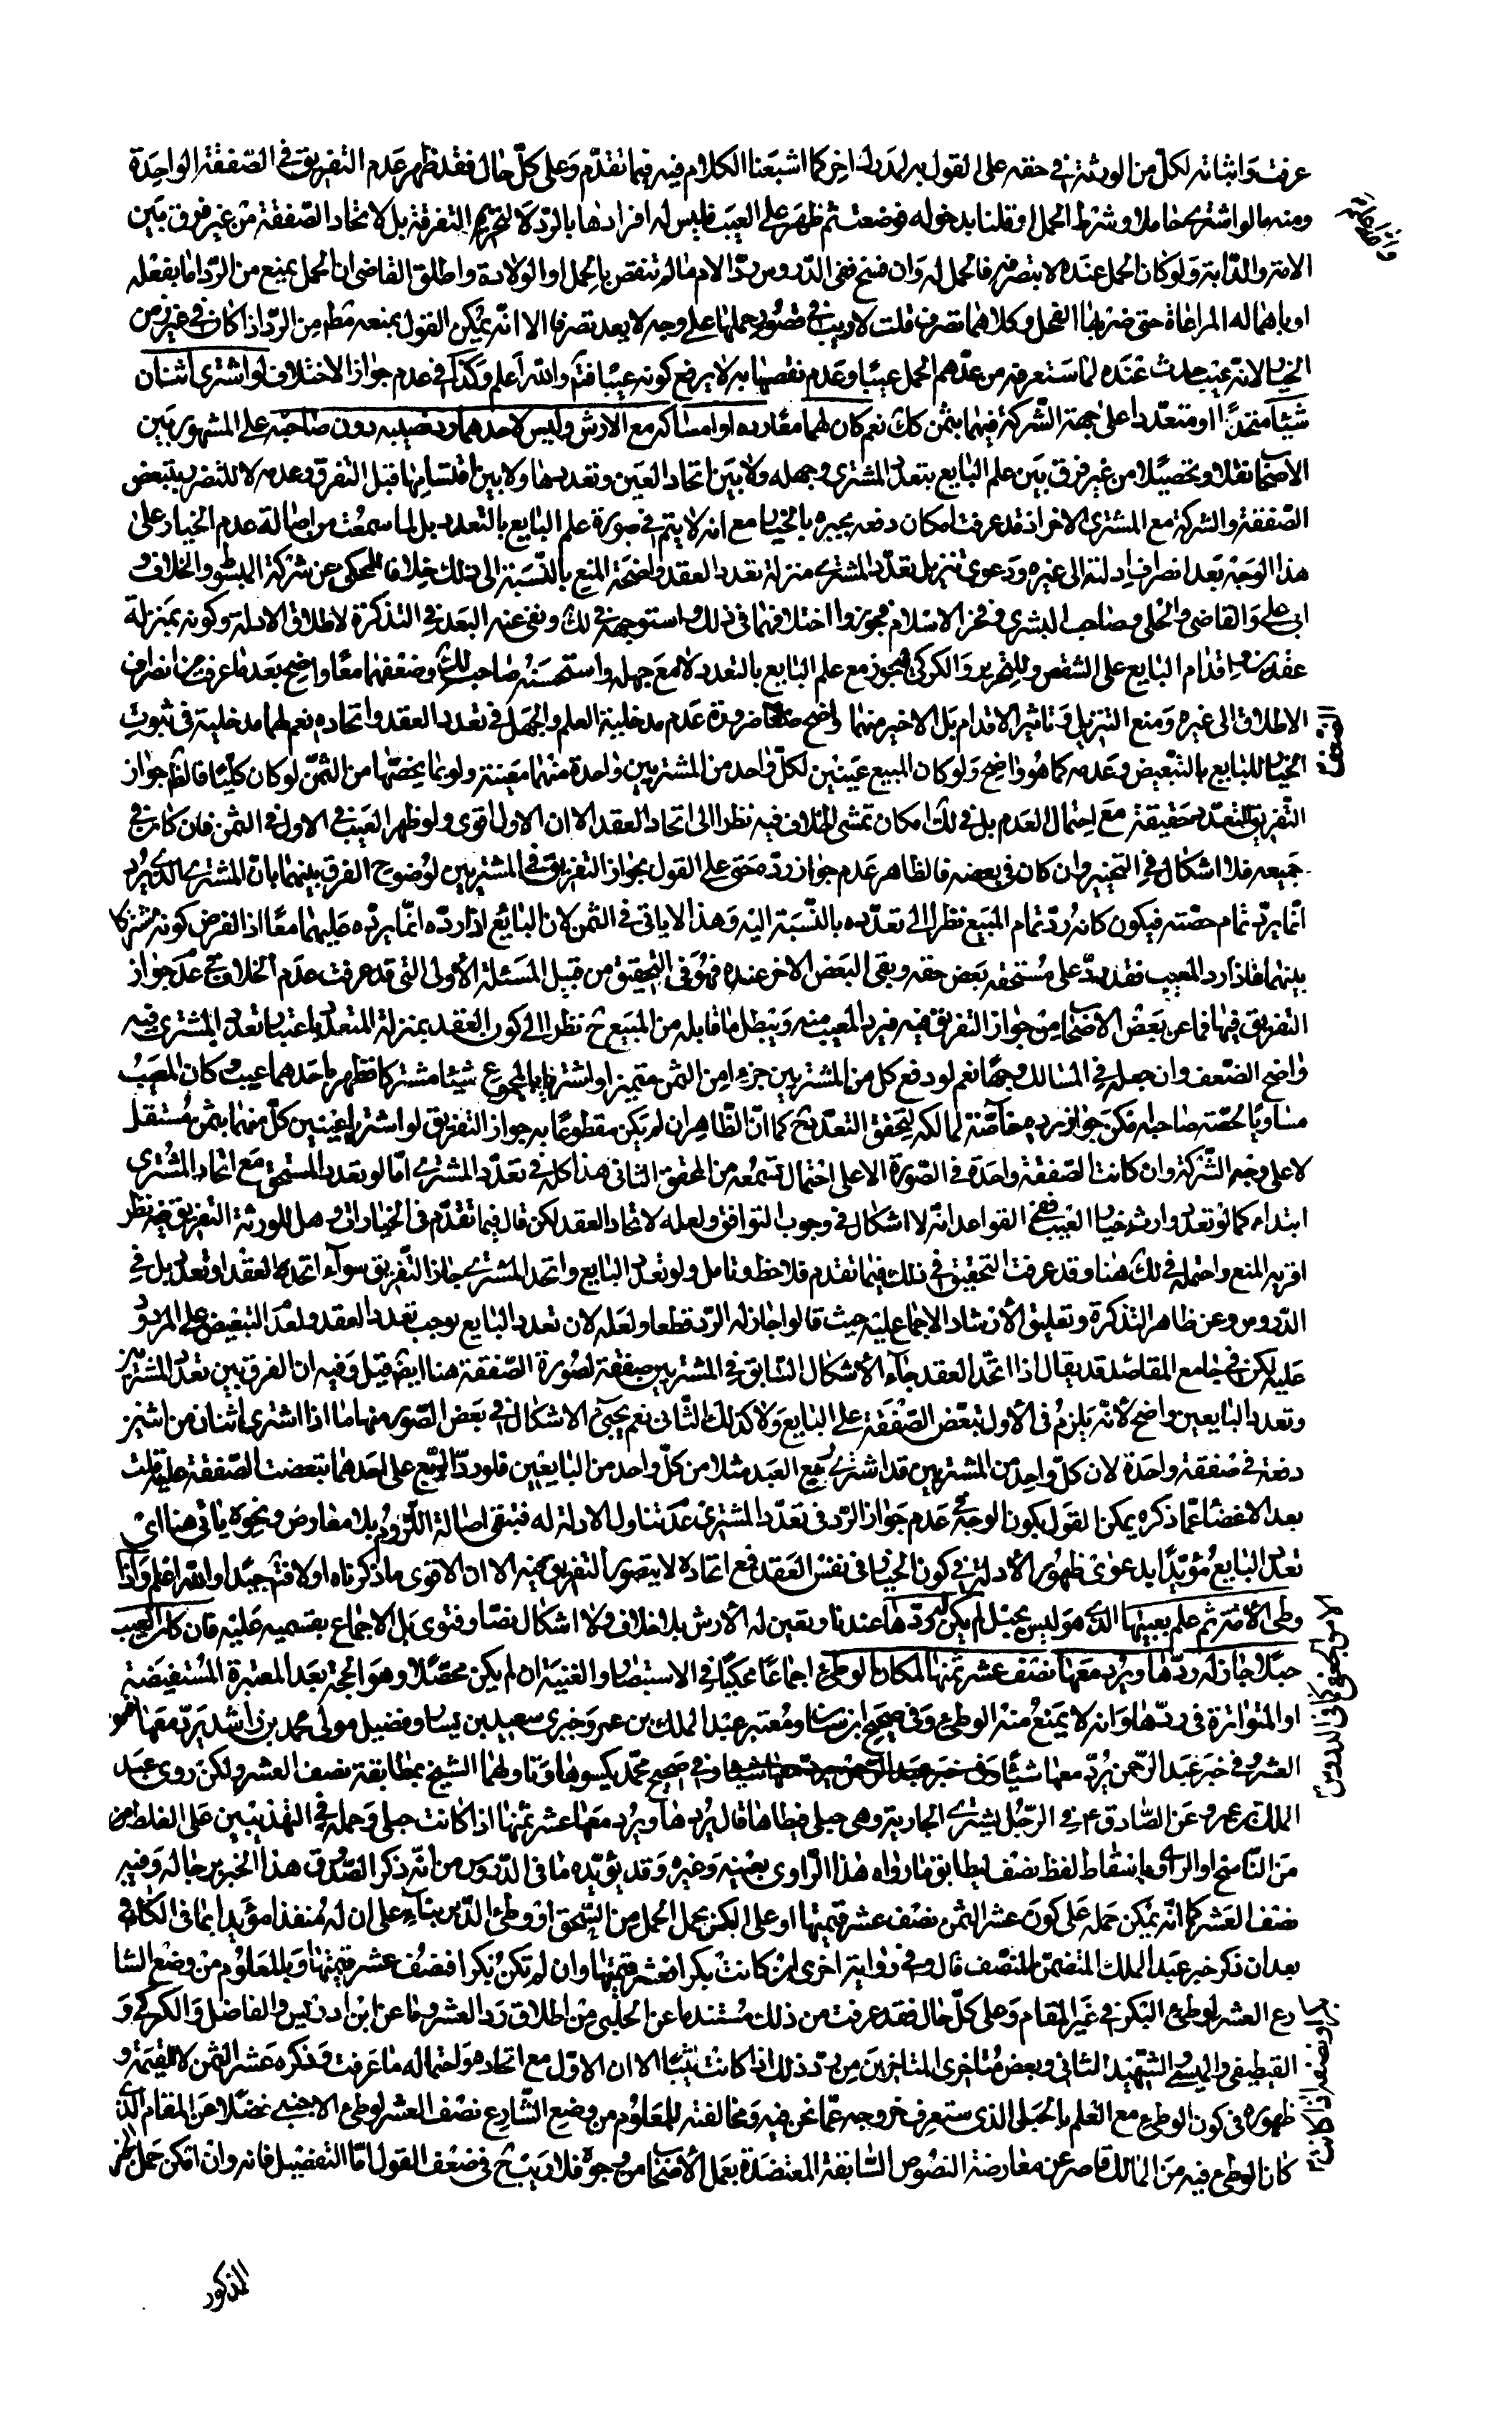 عرفت واثباته لكل من الورثة في حقه على القول به لدليل اخر كما اشبعنا الكلام فيه فيما تقدم وعلى كل حال فقد ظهر عدم التفريق في الصفقة الواحدة
ومنه ما لو اشترى حاملا وشرط الحمل او قلنا بدخوله فوضعت ثم ظهر على العيب فليس له افرادها بالرد لا لتحريم التفرقة بل لاتحاد الصفقة من غير فرق بين
الامة والدابة ولو كان الحمل عنده لا بتصرفه فالحمل له وان فسخ ففي الدروس رد الام ما لم تنقص بالحمل او الولادة واطلق القاضي ان الحمل يمنع من الرد اما بفعله
او باهماله المراعاة حتى ضربها الفحل وكلاهما تصرف قلت لا ريب في تصور حملها على وجه لا يعد تصرفا الا انه يمكن القول بمنعه مط من الرد اذا كان في غير زمن
الخيار لانه عيب حادث عنده لما ستعرفه من عدهم الحمل عيبا وعدم نقصها به لا يرفع كونه عيبا فتم والله اعلم وكذا في عدم جواز الاختلاف لو اشترى اثنان
شيئا متحدا او متعددا على جهة الشركة فيهما بثمن كك نعم كان لهما معا رده او امساكه مع الارش وليس لاحدهما رد نصيبه دون صاحبه على المشهور بين
الاصحاب نقلا وتحصيلا من غير فرق بين علم البايع بتعدد المشتري وجهله ولا بين اتحاد العين وتعددها ولا بين اقتسامها قبل التفرق وعدمه لا للتضرر بتبعض
الصفقة والشركة مع المشتري الاخر اذ قد عرفت امكان دفعه بجبره بالخيار مع انه لا يتم في صورة علم البايع بالتعدد بل لما سمعت من اصالة عدم الخيار على
هذا الوجه بعد انصراف ادلته الى غيره ودعوى تنزيل تعدد المشتري منزلة تعدد العقد واضحة المنع بالنسبة الى ذلك خلافا للمحكي عن شركة المبسوط والخلاف و
ابي علي والقاضي والحلي وصاحب البشرى وفخر الاسلام فجوزوا اختلافهما في ذلك واستوجهه في لك ونفى عنه البعد في التذكرة لاطلاق الادلة وكونه بمنزلة
عقدين واقدام البايع على الشقص وللتحرير والكركي فجوز مع علم البايع بالتعدد لا مع جهله واستحسنه صاحب لك وضعفهما معا واضح بعد ما عرفت من انصراف
الاطلاق الى غيره ومنع التنزيل وتاثير الاقدام بل الاخير منهما واضح ضرورة عدم مدخلية العلم والجهل في تعدد العقد واتحاده نعم لهما مدخلية في ثبوت
الخيار للبايع بالتبعيض وعدمه كما هو واضح ولو كان المبيع عينين لكل واحد من المشتريين واحدة منهما معينة ولو بما يخصها من الثمن لو كان كليا فالظ جواز
التفريق للتعدد حقيقة مع احتمال العدم بل في لك امكان تمشي الخلاف فيه نظرا الى اتحاد العقد الا ان الاول اقوى ولو ظهر العيب في الاول في الثمن فان كان في
جميعه فلا اشكال في التخيير وان كان في بعضه فالظاهر عدم جواز رده حتى على القول بجواز التفريق في المشتريين لوضوح الفرق بينهما بان المشتري الذي يرد
انما يرد تمام حصته فيكون كانه رد تمام المبيع نظرا الى تعدده بالنسبة اليه وهذا لا ياتي في الثمن لان البايع اذا رده انما يرده عليهما معا اذ الفرض كونه مشتركا
بينهما فاذا رد المعيب فقد رد على مستحقه بعض حقه وبقى البعض الاخر عنده فهو في التحقيق من قبيل المسئلة الاولى التي قد عرفت عدم الخلاف في عدم جواز
التفريق فيها فما عن بعض الاصحاب من جواز التفريق فيه فيرد المعيب منه ويبطل ما قابله من المبيع ح نظرا الى كون العقد بمنزلة المتعدد باعتبار تعدد المشتري فيه
واضح الضعف وان جعله في المسالك وجها نعم لو دفع كل من المشتريين جزءا من الثمن متميزا واشتريا بالمجموع شيئا مشتركا فظهر باحدهما عيب وكان المعيب
مساويا لحصة صاحبه امكن جواز رده خاصة لمالكه لتحقق التعدد ح كما ان الظاهر ان لم يكن مقطوعا به جواز التفريق لو اشتريا عينين كل منهما بثمن مستقل
لا على وجه الشركة وان كانت الصفقة واحدة في الصورة الا على احتمال تسمعه من المحقق الثاني هذا كله في تعدد المشتري اما لو تعدد المستحق مع اتحاد المشتري
ابتداء كما لو تعدد وارث خيار العيب ففي القواعد انه لا اشكال في وجوب التوافق ولعله لاتحاد العقد لكن قال فيما تقدم في الخيارات وهل للورثة التفريق فيه نظر
اقربه المنع واحتمله في لك هنا وقد عرفت التحقيق في ذلك فيما تقدم فلاحظ وتامل ولو تعدد البايع واتحد المشتري جاز التفريق سواء اتحد العقد او تعدد بل في
الدروس وعن ظاهر التذكرة وتعليق الارشاد الاجماع عليه حيث قالوا جاز له الرد قطعا ولعله لان تعدد البايع يوجب تعدد العقد ولعدم التبعيض على المردود
عليه لكن في جامع المقاصد قد يقال اذا اتحد العقد جاء الاشكال السابق في المشتريين صفقة لصورة الصفقة هنا ايضا قيل وفيه ان الفرق بين تعدد المشتريين
وتعدد البايعين واضح لانه يلزم في الاول تبعض الصفقة على البايع ولا كذلك الثاني نعم يجئ الاشكال في بعض الصور منها ما اذا اشترى اثنان من اثنين
دفعة في صفقة واحدة لان كل واحد من المشتريين قد اشترى ربع العبد مثلا من كل واحد من البايعين فلو رد الربع على احدهما تبعضت الصفقة عليه قلت
بعد الاغضاء عما ذكره يمكن القول بكون الوجه في عدم جواز الرد في تعدد المشتري عدم تناول الادلة له فتبقى اصالة اللزوم بلا معارض ونحوه ياتي هنا اي
تعدد البايع مؤيدا بدعوى ظهور الادلة في كون الخيار في نفس العقد فمع اتحاده لا يتصور التفريق فيه الا ان الاقوى ما ذكرناه اولا فتم جيدا والله اعلم واذا
وطئ الامة ثم علم بعيبها الذي هو ليس بحبل لم يكن له ردها عندنا وتعين له الارش بلا خلاف ولا اشكال نصا وفتوى بل الاجماع بقسميه عليه فان كان العيب
حبلا جاز له ردها ويرد معها نصف عشر ثمنها لمكان الوطئ اجماعا محكيا في الاستبصار والغنية ان لم يكن محصلا وهو الحجة بعد المعتبرة المستفيضة
او المتواترة في ردها وانه لا يمنع منه الوطئ وفي صحيح ابن سنان ومعتبر عبد الملك بن عمرو وخبري سعيد بن يسار وفضيل مولى محمد بن راشد يرد معها نصف
العشر وفي خبر عبد الرحمن يرد معها شيئا وفي صحيح محمد يكسوها وتاولهما الشيخ بمطابقة نصف العشر ولكن روى عبد
الملك بن عمرو عن الصادق ع في الرجل يشتري الجارية وهي حبلى فيطاها قال يردها ويرد معها عشر ثمنها اذا كانت حبلى وحمله في التهذيبين على الغلط من
من الناسخ او الراوي باسقاط لفظ نصف ليطابق ما رواه هذا الراوي بعينه وغيره وقد يؤيده ما في الدروس من انه ذكر الصدوق هذا الخبر برجاله وفيه
نصف العشر كما انه يمكن حمله على كون عشر الثمن نصف عشر قيمتها او على البكر بحمل الحمل من السحق او وطئ الدبر بناء على ان له منفذا مؤيدا بما في الكافي
بعد ان ذكر خبر عبد الملك المتضمن للنصف قال وفي رواية اخرى ان كانت بكرا فعشر قيمتها وان لم تكن بكرا فنصف عشر قيمتها وبالمعلوم من وضع الشا
رع العشر لوطئ البكر في غير المقام وعلى كل حال فقد عرفت من ذلك مستند ما عن الحلبي من اطلاق رد العشر وما عن ابن ادريس والفاضل والكركي و
القطيفي والميسي والشهيد الثاني وبعض متاخري المتاخرين من رد ذلك اذا كانت ثيبا الا ان الاول مع اتحاده واحتماله ما عرفت وذكره عشر الثمن لا القيمة و
ظهوره في كون الوطئ مع العلم بالحبل الذي ستعرف خروجه عما نحن فيه ومخالفته للمعلوم من وضع الشارع نصف العشر لوطئ الاجنبي فضلا عن المقام الذي
كان الوطئ فيه من المالك قاصر عن معارضة النصوص السابقة المعتضدة بعمل الاصحاب من وجوه فلا ريب ح في ضعف القول اما التفصيل فانه وان امكن حمل الخبر
المذكور